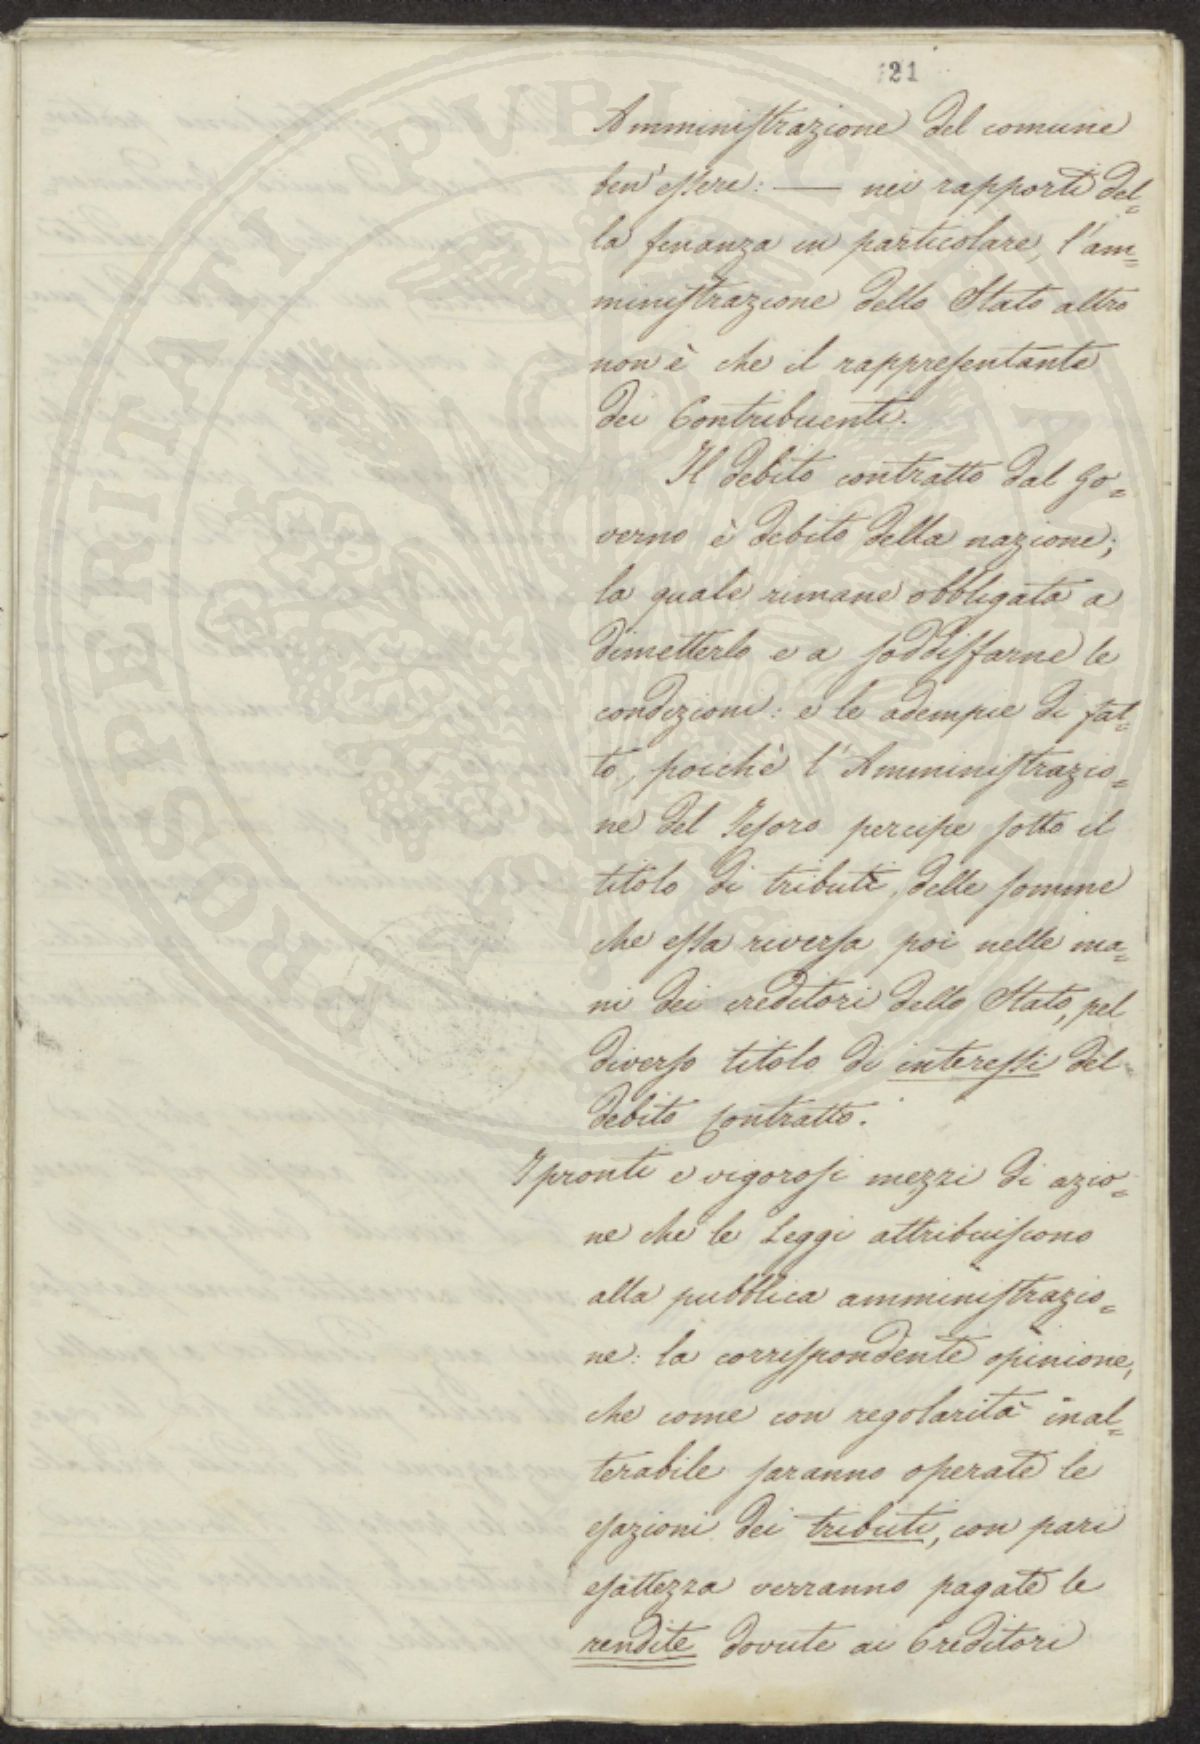 121
Amministrazione del comune
ben'essere: — nei rapporti del=
la finanza in particolare, l'am=
ministrazione dello Stato altro
non è che il rappresentante
dei Contribuenti.
Il debito contratto dal Go=
verno è debito della nazione;
la quale rimane obbligata a
dimetterlo e a soddisfarne le
condizioni: e le adempie di fat=
to, poichè l'Amministrazio=
ne del Tesoro percipe sotto il
titolo di tributi, delle somme
che essa riversa poi nelle ma=
ni dei creditori dello Stato, pel
diverso titolo di interessi del
debito contratto.
I pronti e vigorosi mezzi di azio=
ne che le Leggi attribuiscono
alla pubblica amministrazio=
ne: la corrispondente opinione,
che come con regolarità inal=
terabile saranno operate le
esazioni dei tributi, con pari
esattezza verranno pagate le
rendite dovute ai Creditori
PROSPERITATI PUBLICAE